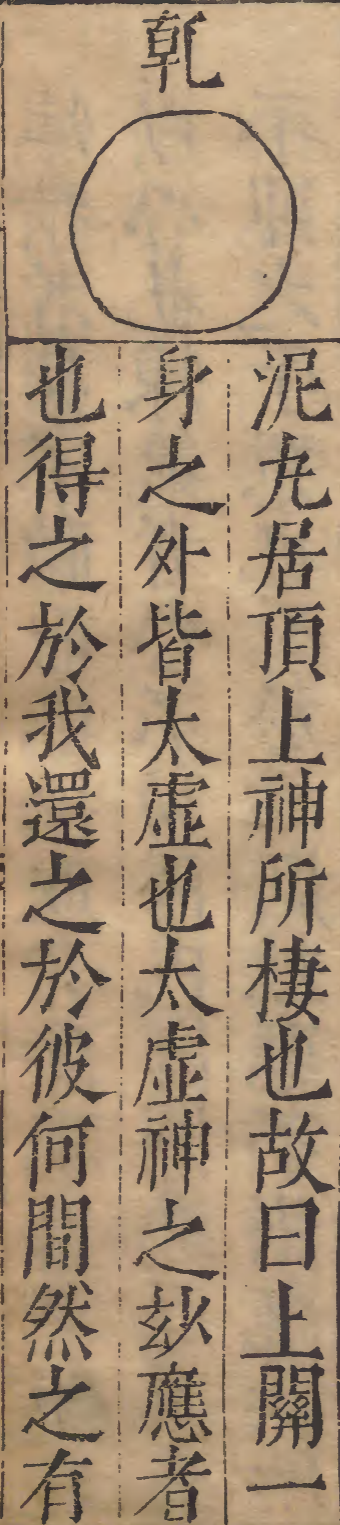 乾
泥丸居頂上神所棲也故曰上關一
身之外皆太虛也太虛神之玅應者
也得之於我還之於彼何間然之有